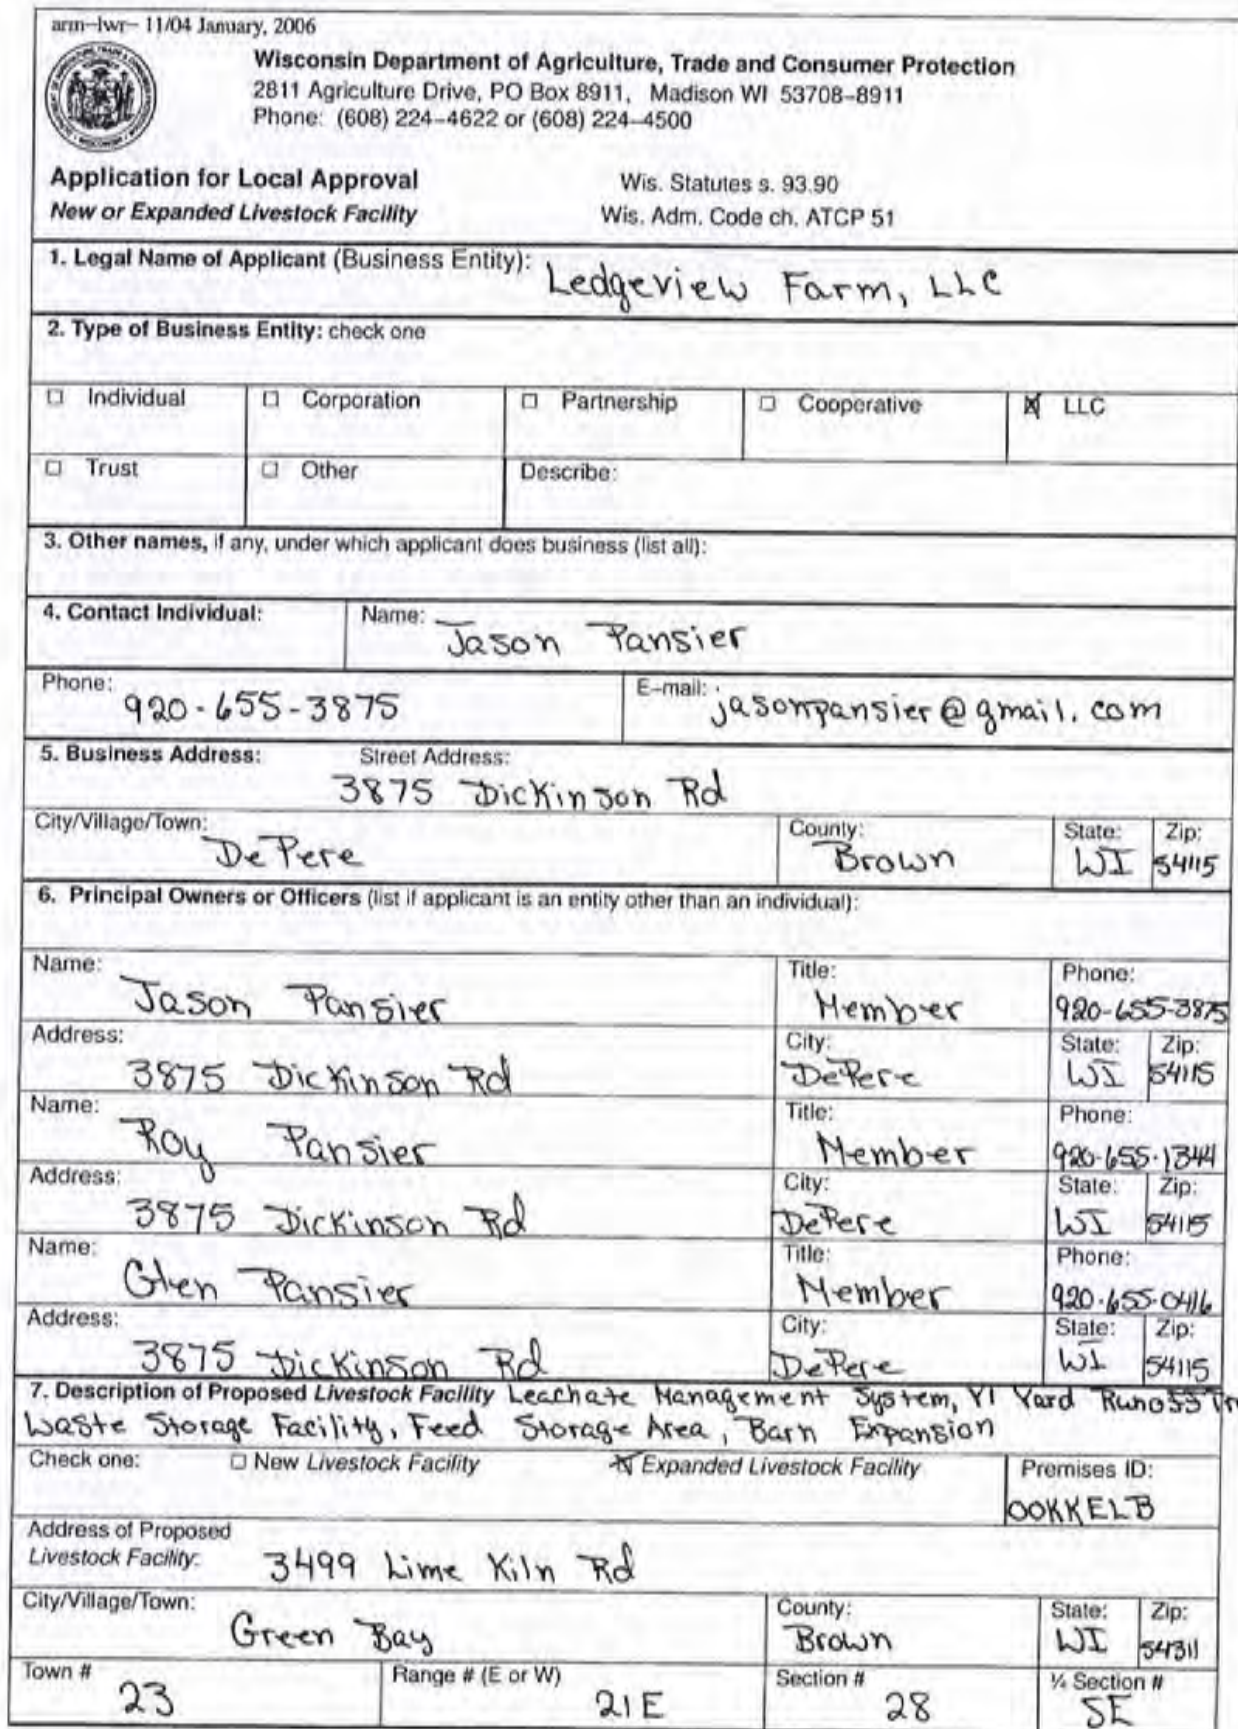 arm-lwr- 11/04 January, 2006
Wisconsin Department of Agriculture, Trade and Consumer Protection
2811 Agriculture Drive, PO Box 8911, Madison WI 53708-8911
Phone: (608) 224-4622 or (608) 224-4500
Application for Local Approval Wis. Statutes s. 93.90
New or Expanded Livestock Facility Wis. Adm. Code ch. ATCP 51
1. Legal Name of Applicant (Business Entity): Ledgeview Farm, LLC
2. Type of Business Entity: check one
☐ Individual ☐ Corporation ☐ Partnership ☐ Cooperative ☒ LLC
☐ Trust ☐ Other Describe:
3. Other names, if any, under which applicant does business (list all):
4. Contact Individual: Name: Jason Pansier
Phone: 920-655-3875 E-mail: jasonpansier@gmail.com
5. Business Address: Street Address:
3875 Dickinson Rd
City/Village/Town: DePere County: Brown State: WI Zip: 54115
6. Principal Owners or Officers (list if applicant is an entity other than an individual):
Name: Jason Pansier Title: Member Phone: 920-655-3875
Address: 3875 Dickinson Rd City: DePere State: WI Zip: 54115
Name: Roy Pansier Title: Member Phone: 920-655-1344
Address: 3875 Dickinson Rd City: DePere State: WI Zip: 54115
Name: Glen Pansier Title: Member Phone: 920-655-0416
Address: 3875 Dickinson Rd City: DePere State: WI Zip: 54115
7. Description of Proposed Livestock Facility Leachate Management System, Y1 Yard Runoff
Waste Storage Facility, Feed Storage Area, Barn Expansion
Check one: ☐ New Livestock Facility ☒ Expanded Livestock Facility Premises ID: 00KKELB
Address of Proposed
Livestock Facility: 3499 Lime Kiln Rd
City/Village/Town: Green Bay County: Brown State: WI Zip: 54311
Town # 23 Range # (E or W) 21E Section # 28 ¼ Section # SE